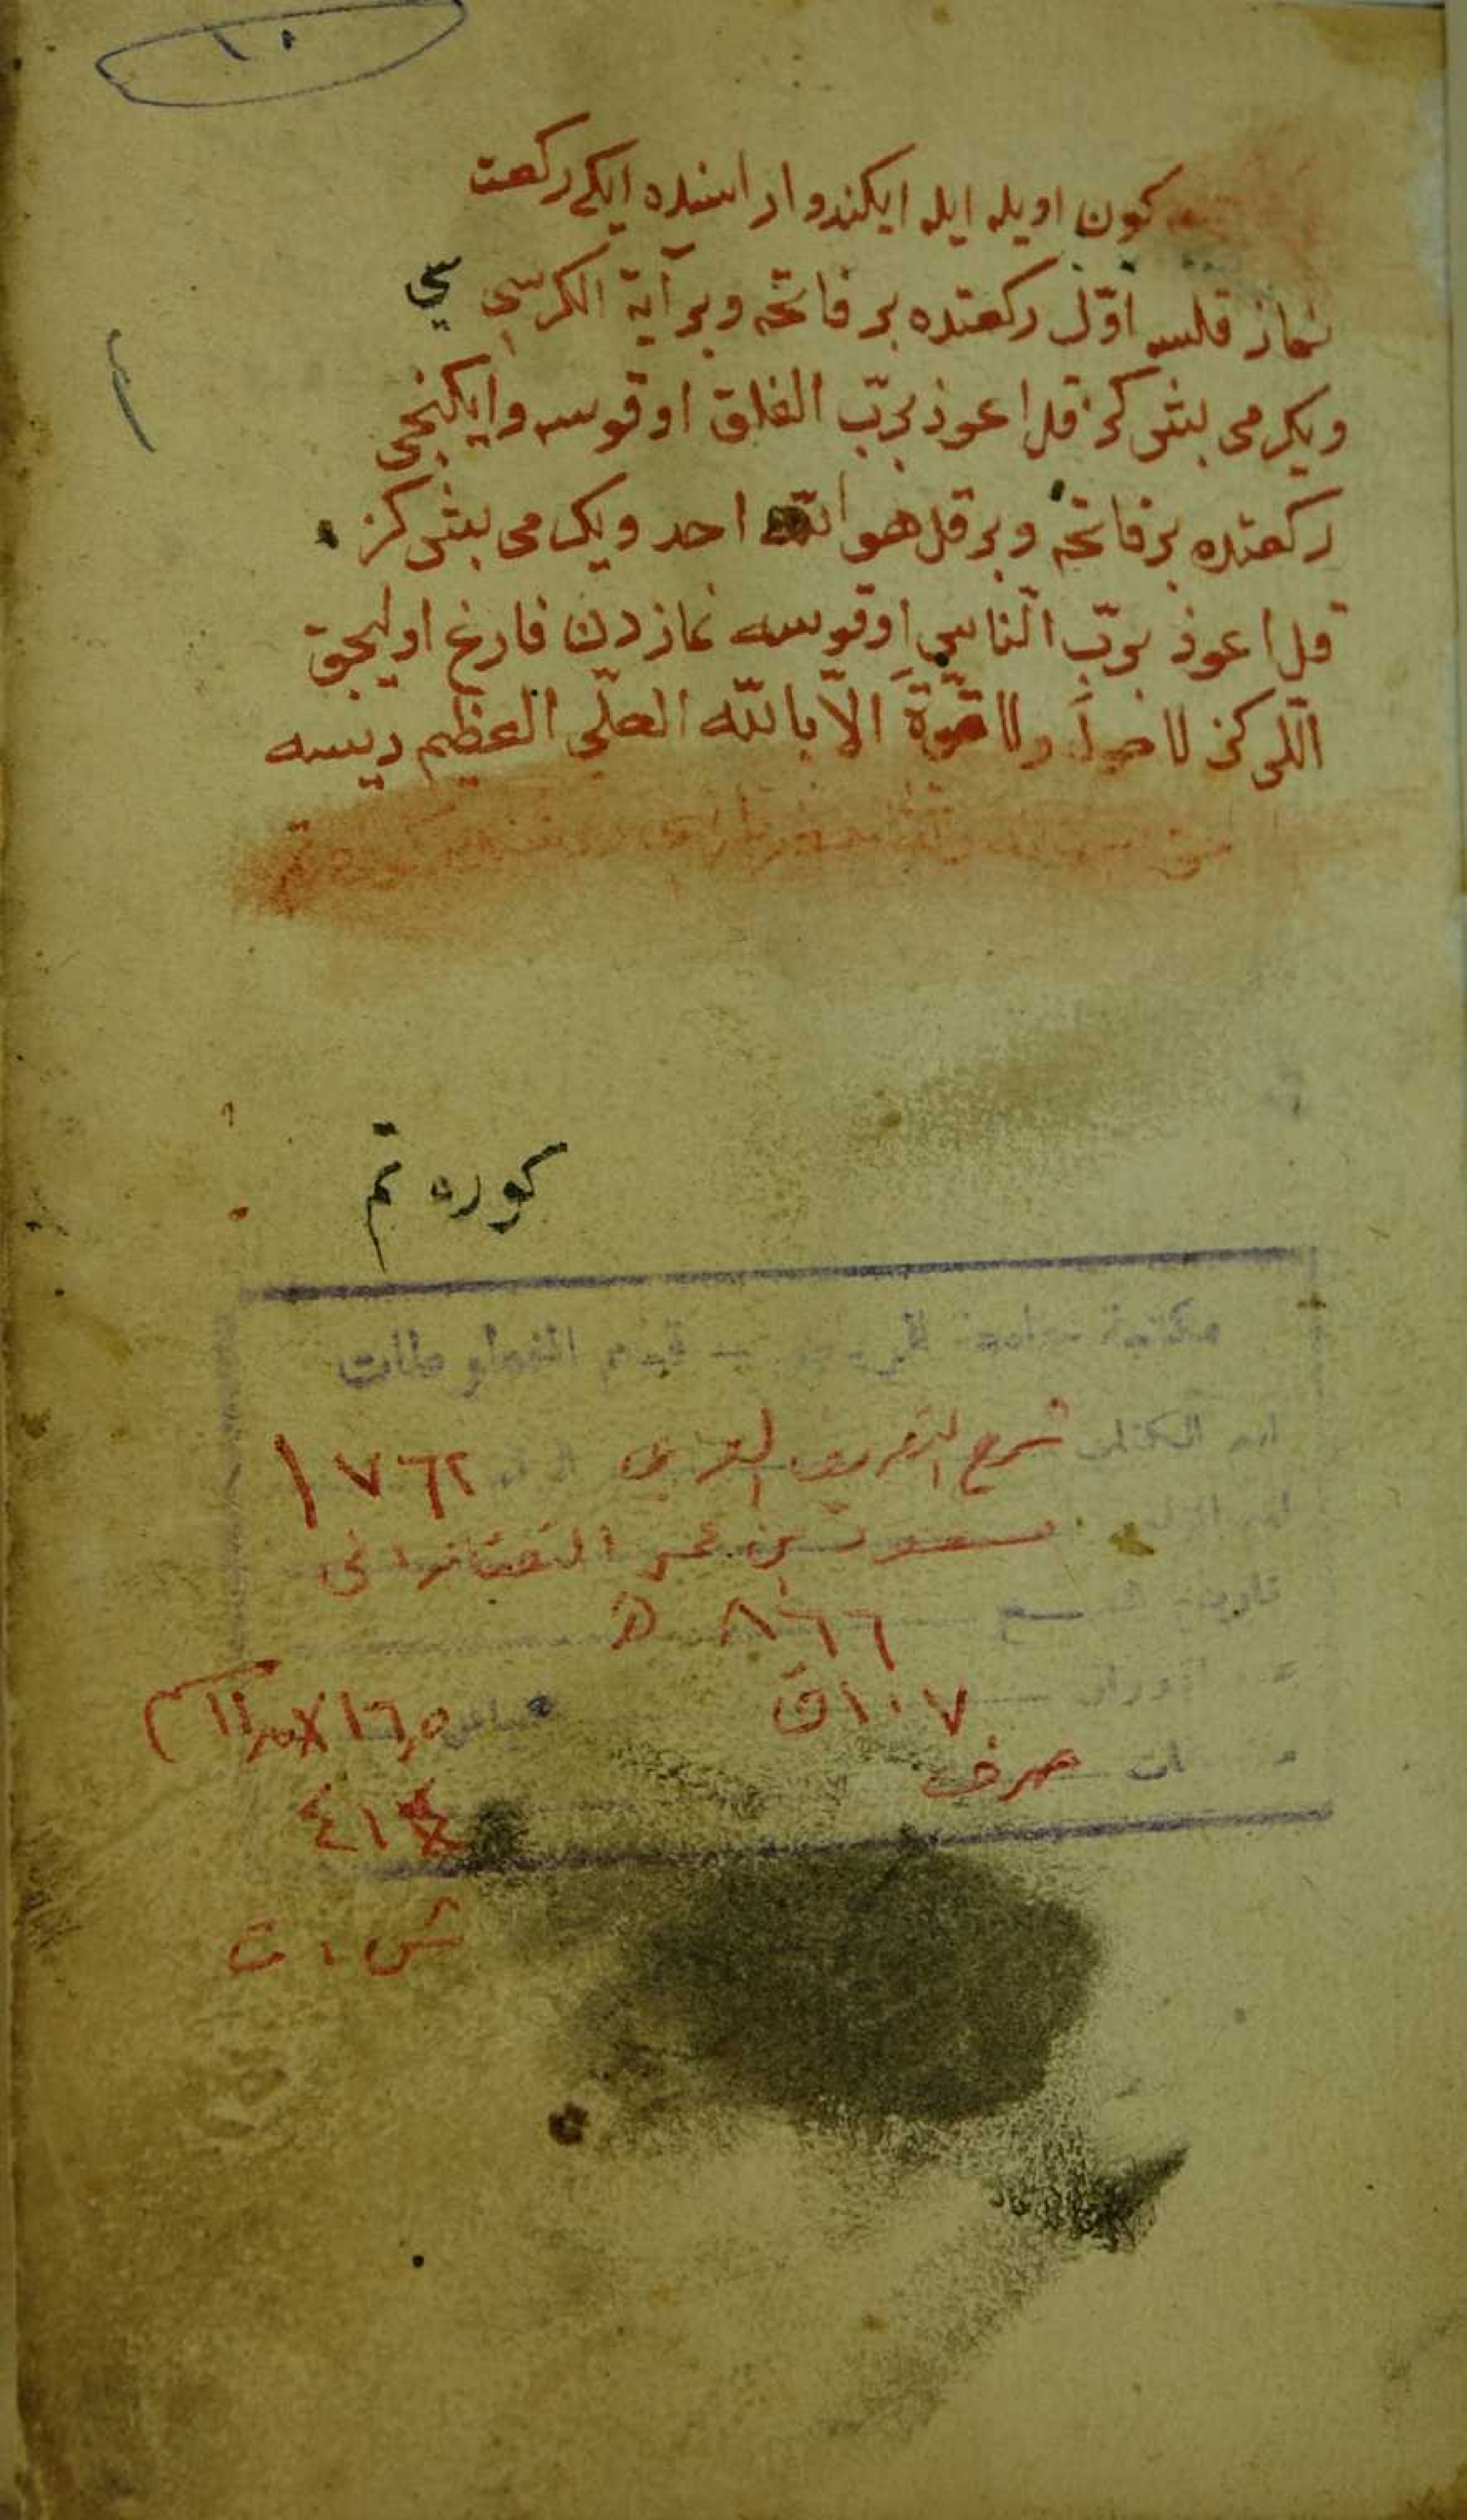 ١٠
كون اويله ايله ايكندو اراسنده ايكى ركعت
نماز قلسه اوّل ركعتده بر فاتحه وبر آية الكرسى سي
ويكرمى بش كز قل اعوذ بربّ الفلق اوقوسه وايكنجى
ركعتده بر فاتحه وبر قل هو الله احد ويكرمى بش كز
قل اعوذ بربّ النّاس اوقوسه نمازدن فارغ اوليجق
اللى كز لا حول ولا قوّة الاّ بالله العلّى العظيم ديسه
كوره تم
مكتبة جامعة الرياض - قسم المخطوطات
اسم الكتاب شرح التصريف العزي الرقم ١٧٦٢
اسم المؤلف سعود بن عمر التفتازانى
تاريخ النسخ ٨٦٦ ه
عدد الاوراق ١٠٧ ق
مقاس ١٦,٥
صرف
٤١٤
ش . ت